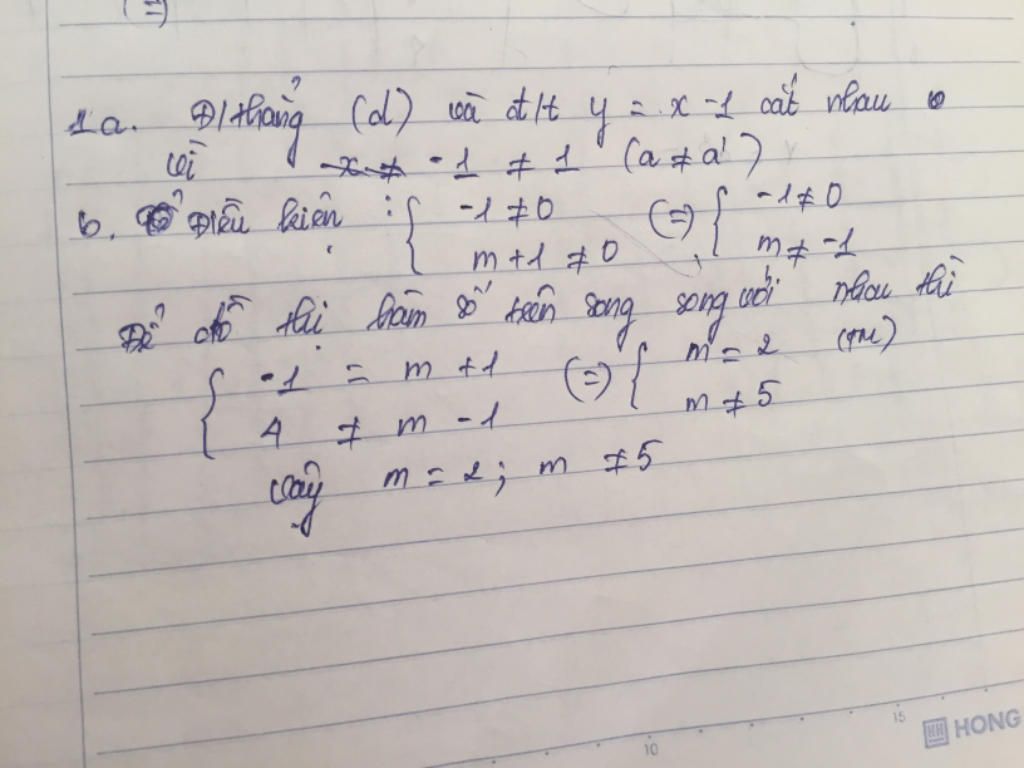 (=)
1a. Đ/thẳng (d) và đ/t y = x -1 cắt nhau
vì -x ≠ -1 ≠ 1 (a ≠ a')
b. Điều kiện : { -1 ≠ 0 (=) { -1 ≠ 0
m + 1 ≠ 0 , m ≠ -1
Để đồ thị hàm số trên song song với nhau thì
{ -1 = m + 1 (=) { m = 2 (TM)
4 ≠ m - 1 m ≠ 5
Vậy m = 2 ; m ≠ 5
10 15 HH HONG